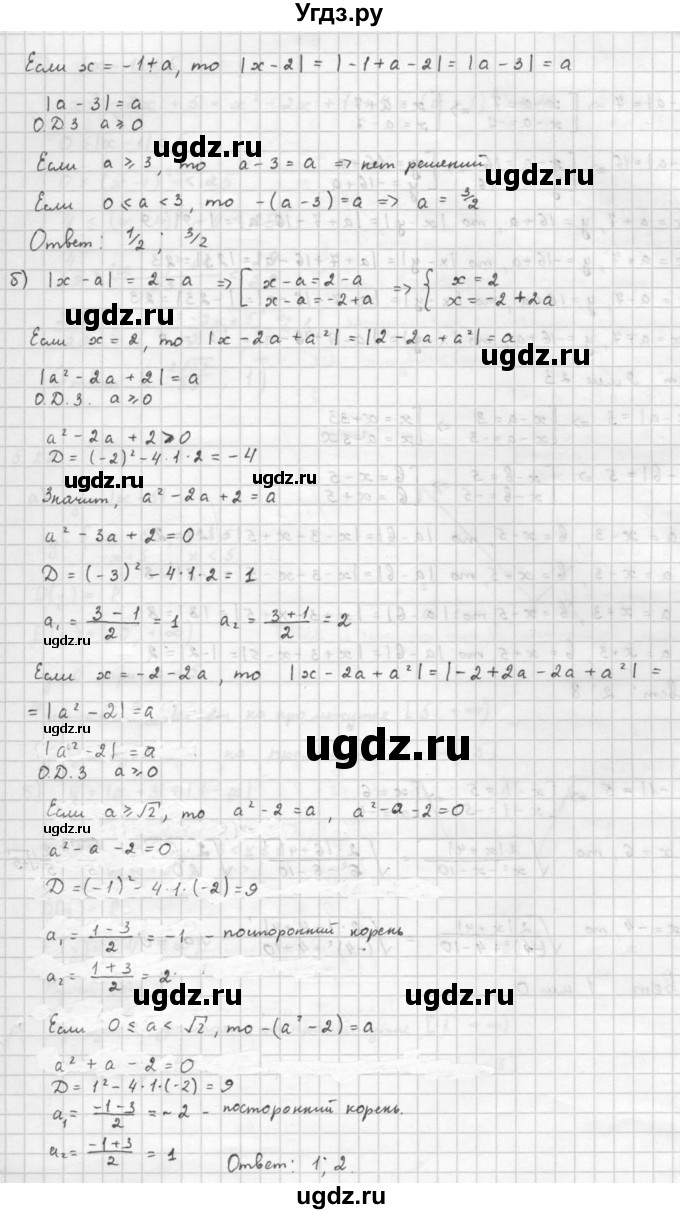 Угдз.ру
Если x = -1+a, то |x-2| = |-1+a-2| = |a-3| = a
|a-3| = a
О.Д.З a ⩾ 0
ugdz.ru
Если a ⩾ 3, то a-3 = a => нет решений
ugdz.ru
Если 0 ⩽ a < 3, то -(a-3) = a => a = 3/2
Ответ: 1/2 ; 3/2
б) |x-a| = 2-a => [ x-a = 2-a => { x = 2
x-a = -2+a x = -2+2a
ugdz.ru
Если x = 2, то |x-2a+a²| = |2-2a+a²| = a
ugdz.ru
|a²-2a+2| = a
О.Д.З. a ⩾ 0
a²-2a+2 > 0
D = (-2)²-4·1·2 = -4
ugdz.ru ugdz.ru
Значит, a²-2a+2 = a
a²-3a+2 = 0
D = (-3)²-4·1·2 = 1
a₁ = (3-1)/2 = 1 a₂ = (3+1)/2 = 2
ugdz.ru
Если x = -2-2a, то |x-2a+a²| = |-2+2a-2a+a²| =
= |a²-2| = a
ugdz.ru
ugdz.ru
|a²-2| = a
О.Д.З a ⩾ 0
Если a ⩾ √2, то a²-2 = a, a²-a-2 = 0
ugdz.ru
a²-a-2 = 0
D = (-1)²-4·1·(-2) = 9
a₁ = (1-3)/2 = -1 - посторонний корень
a₂ = (1+3)/2 = 2
ugdz.ru ugdz.ru
Если 0 ⩽ a < √2, то -(a²-2) = a
a²+a-2 = 0
D = 1²-4·1·(-2) = 9
a₁ = (-1-3)/2 = -2 - посторонний корень.
ugdz.ru
a₂ = (-1+3)/2 = 1 Ответ: 1; 2.
ugdz.ru
ugdz.ru